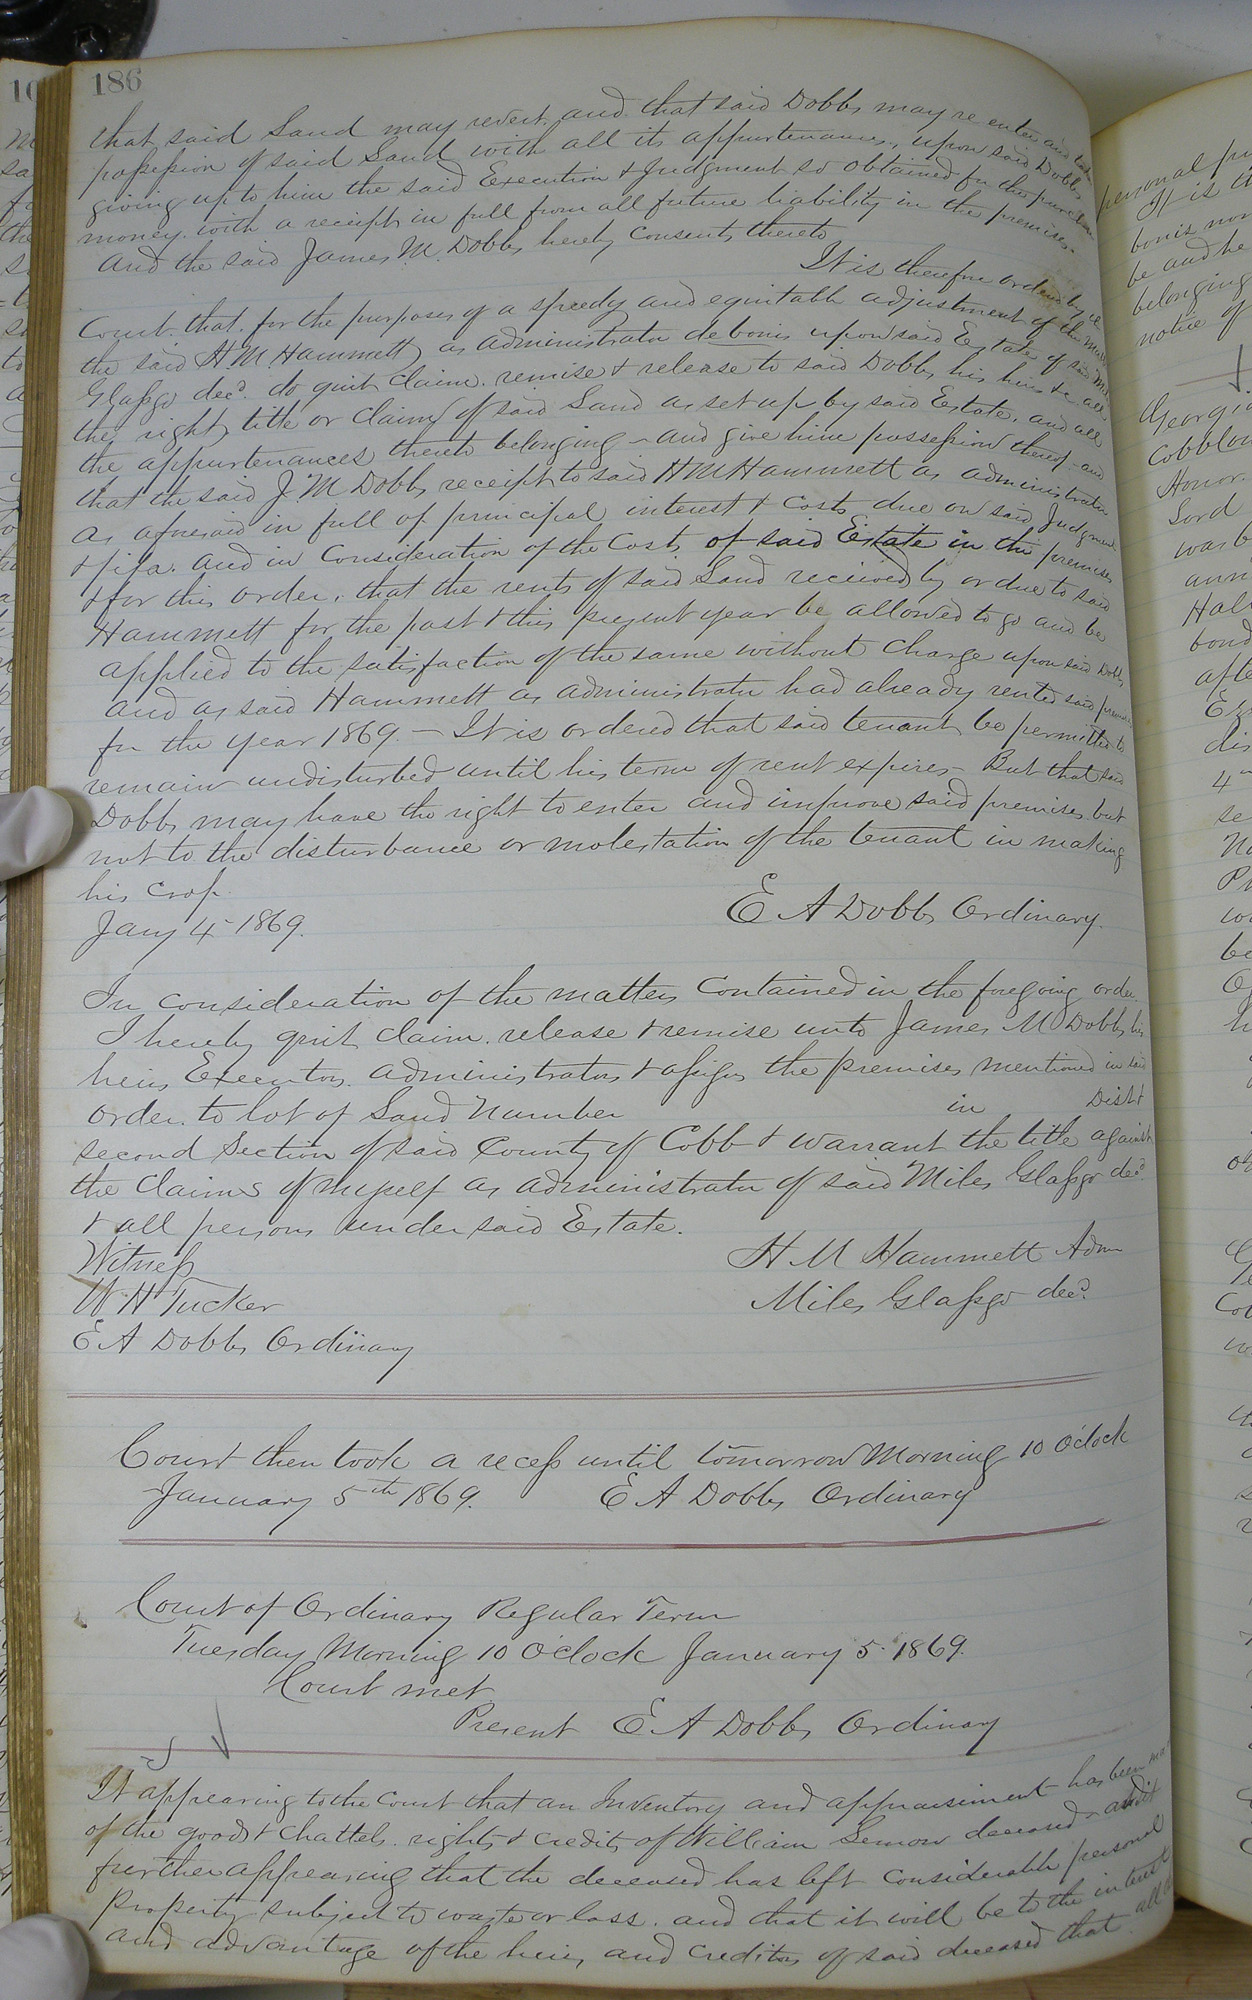 186
that said Land may revert and that said Dobbs may re enter and take
possession of said Land with all its appurtenances, upon said Dobbs
giving up to him the said Execution & Judgment so obtained for the purchase
money. with a receipt in full from all future liability in the premises.
And the said James M. Dobbs hereby consents thereto
It is therefore ordered by
Court. that. for the purposes of a speedy and equitable adjustment of the
the said H. M. Hammett as administrator de bonis upon said Estate of said
Glassgo decd. do quit claim. remise & release to said Dobbs his heirs &c all
the right title or claim of said Land as set up by said Estate. and all
the appurtenances thereto belonging - and give him possession thereof - and
that the said J M Dobbs receipt to said H M Hammett as administrator
as aforesaid in full of principal interest & costs due on said Judgment
& fifa. and in Consideration of the Costs of said Estate in the premises
& for this order, that the rents of said Land received by or due to said
Hammett for the past & this present year be allowed to go and be
applied to the satisfaction of the same without Charge upon said Dobbs
and as said Hammett as administrator had already rented said
for the year 1869. - It is ordered that said tenant be permitted to
remain undisturbed until his term of rent expires - But that said
Dobbs may have the right to enter and improve said premises but
not to the disturbance or molestation of the tenant in making
his crop.
Jany 4 - 1869. E A Dobbs Ordinary.
In consideration of the matters contained in the foregoing order.
I hereby quit claim. release & remise unto James M Dobbs his
heirs Executors. administrators & assigns the premises mentioned in said
order. to lot of Land Number in Dist
second Section of said County of Cobb & warrant the title against
the claims of myself as administrator of said Miles Glassgo decd
& all persons under said Estate.
Witness H M Hammett Admr
W H Tucker Miles Glassgo decd.
E A Dobbs Ordinary
Court then took a recess until tomorrow Morning 10 O'clock
January 5th 1869. E A Dobbs Ordinary
Court of Ordinary Regular Term
Tuesday Morning 10 O'clock January 5. 1869.
Court met
Present E A Dobbs Ordinary
It appearing to the Court that an Inventory and appraisement has been
of the goods & Chattels. rights & credits of William Lemon deceased & it
further appearing that the deceased has left considerable personal
Property subject to waste or loss. and that it will be to the interest
and advantage of the heirs and creditors of said deceased that all